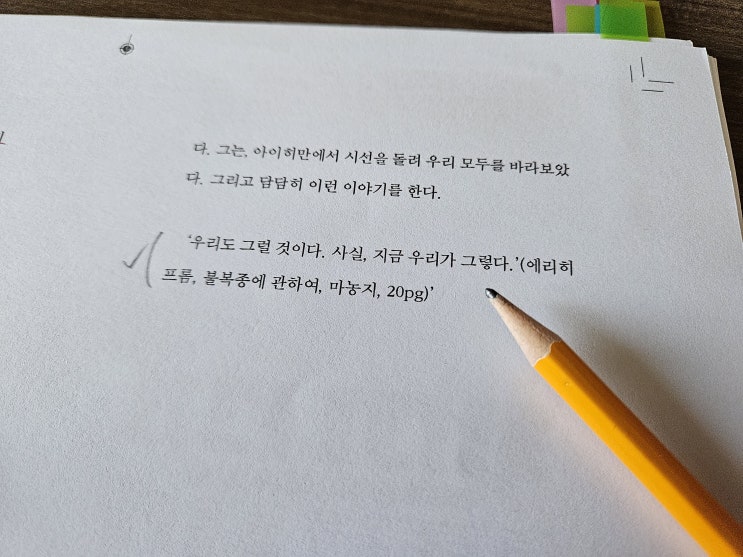 다. 그는, 아이히만에서 시선을 돌려 우리 모두를 바라보았
다. 그리고 담담히 이런 이야기를 한다.
‘우리도 그럴 것이다. 사실, 지금 우리가 그렇다.’(에리히
프롬, 불복종에 관하여, 마농지, 20pg)’